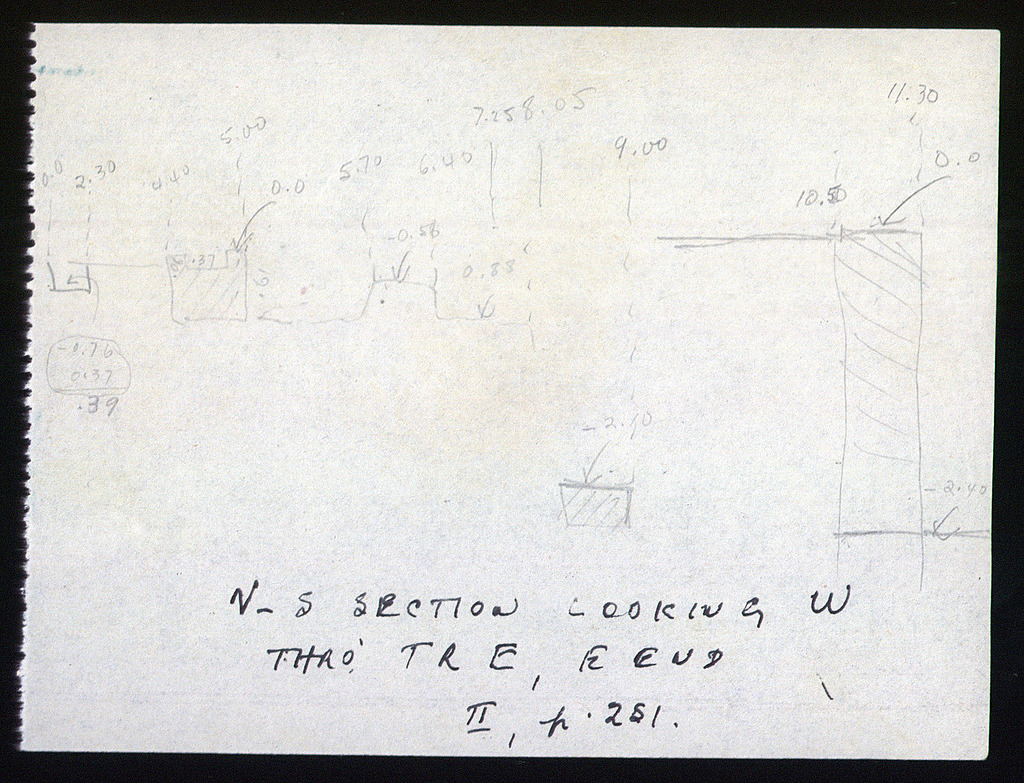 11.30
7.25 8.05
5.00
9.00
0.0
0.0 2.30 4.40 0.0 5.70 6.40
10.50
-0.58
.37
0.88
-0.76
0.37
.39
-2.10
-2.40
N-S SECTION LOOKING W
THRO' TR E, E END
II, p. 251.